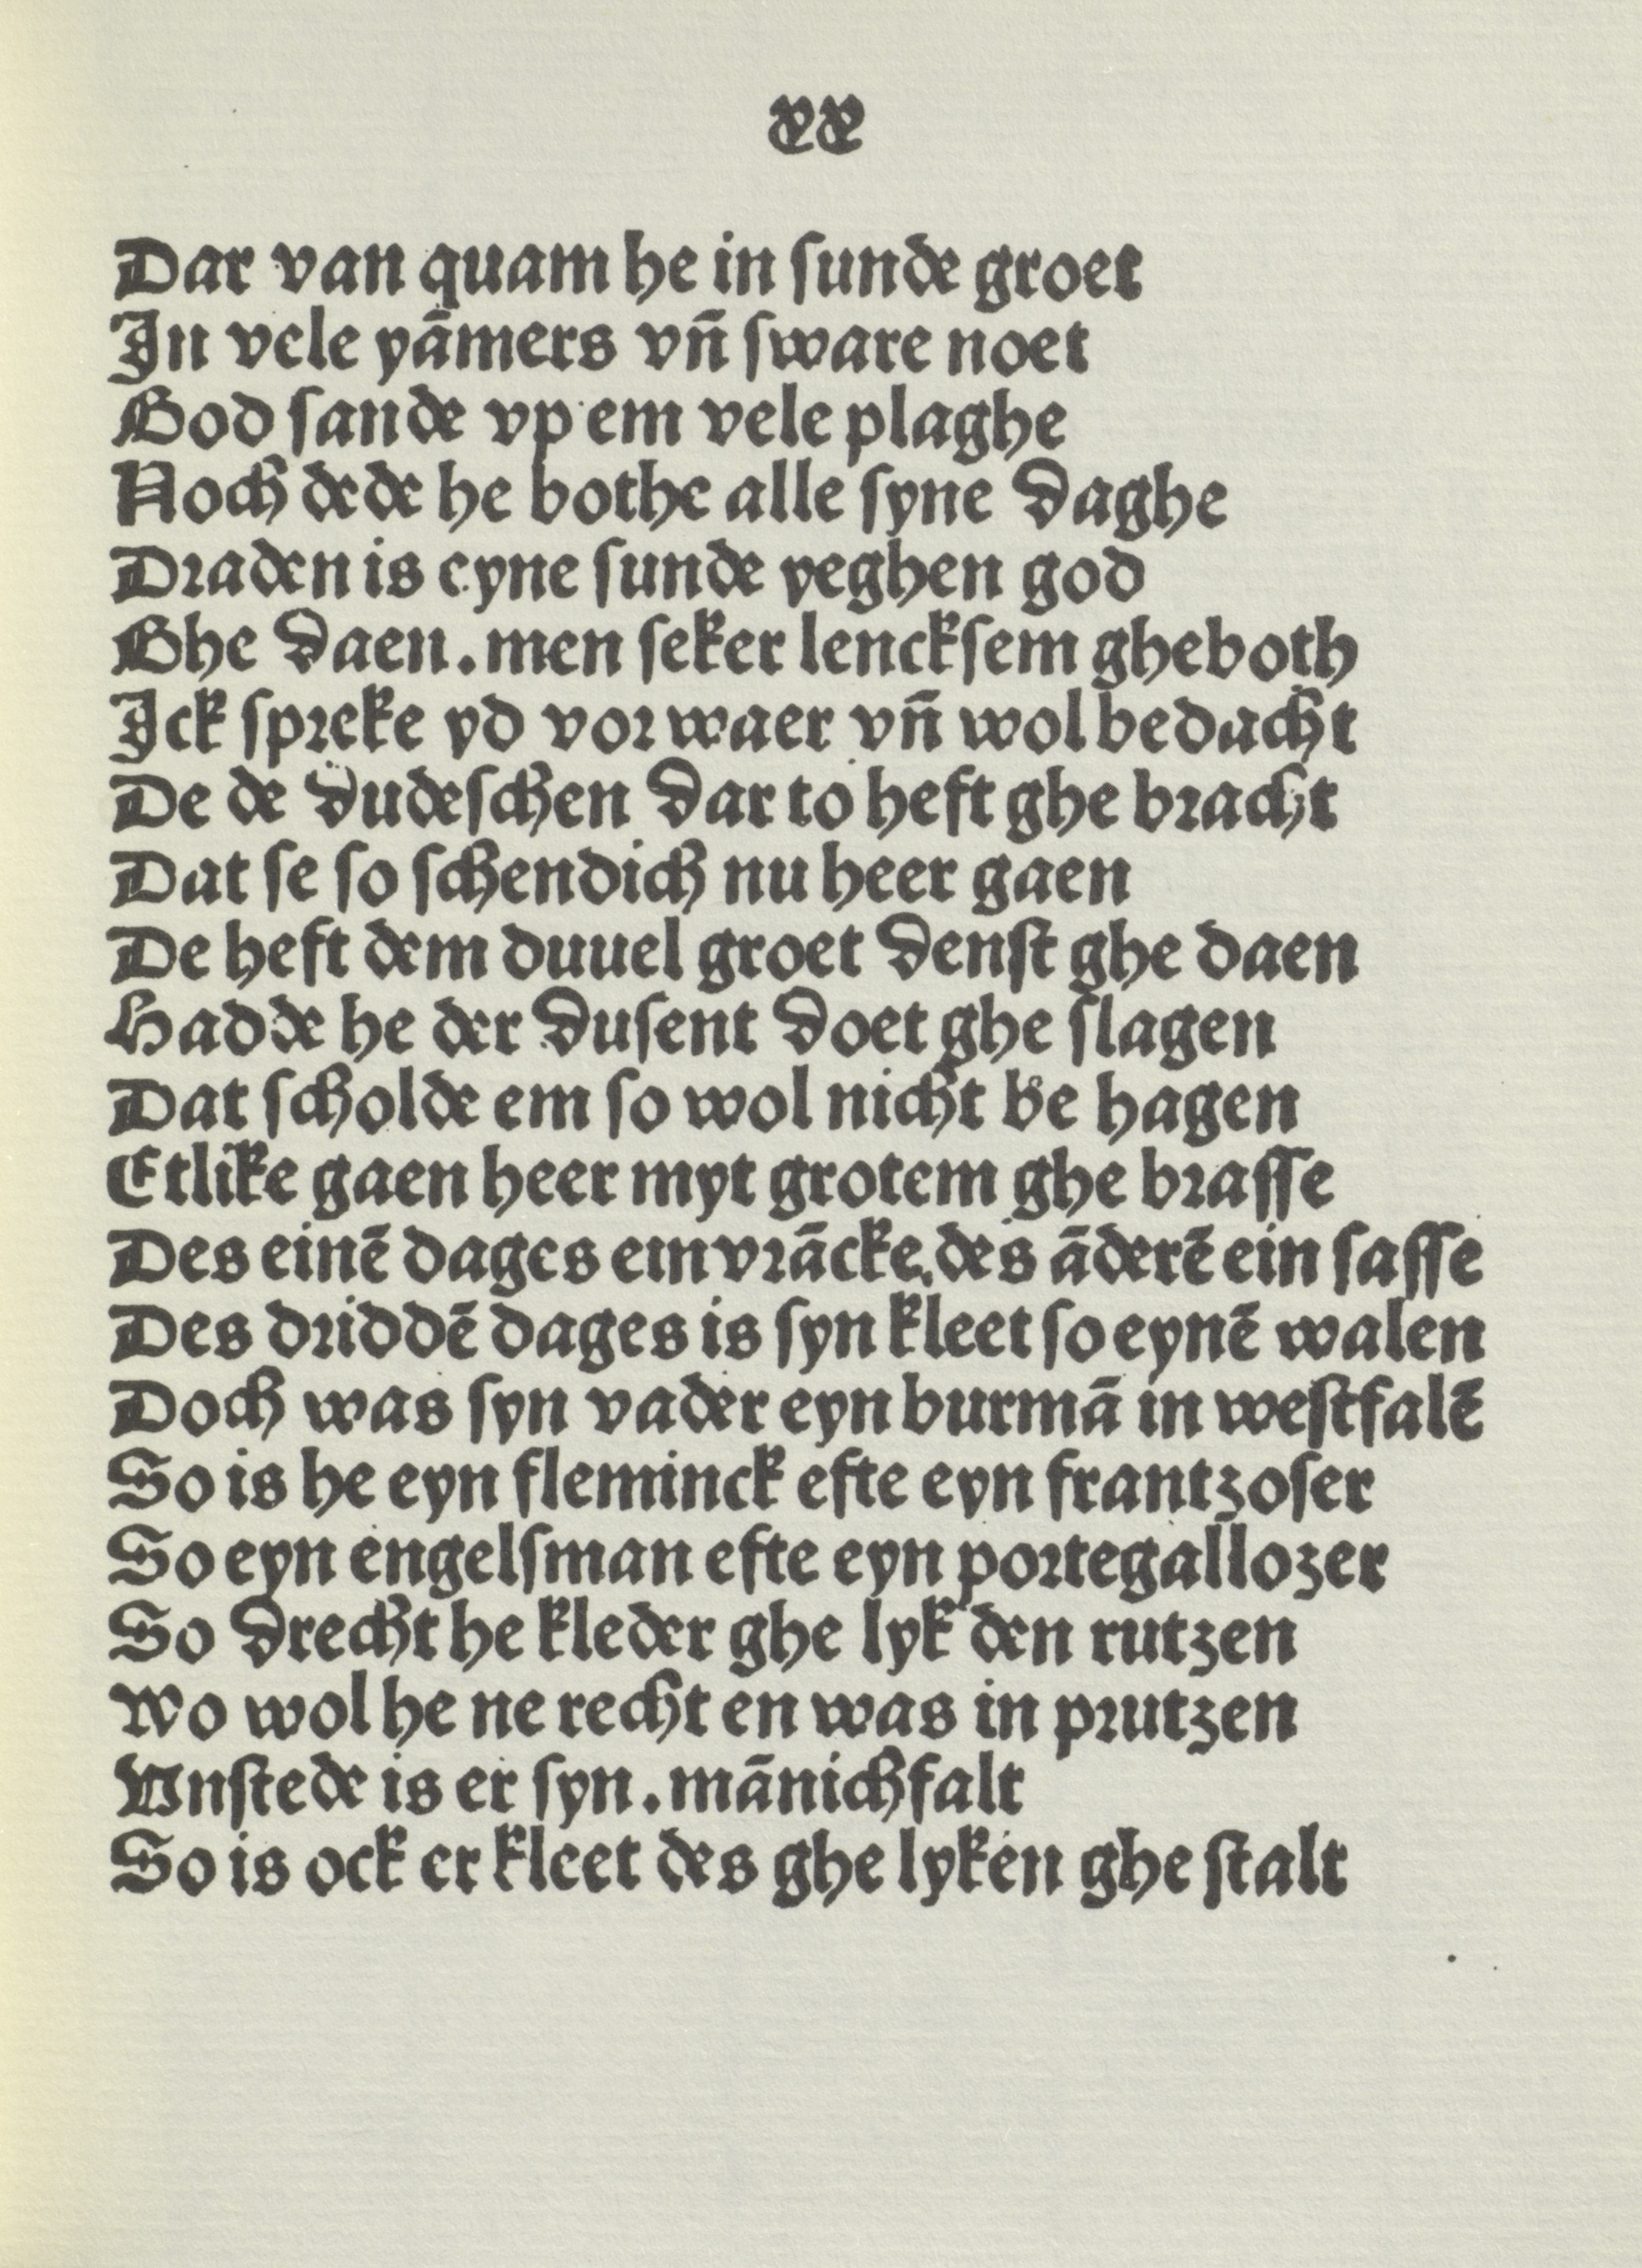 xx
Dar van quam he in ſunde groet
In vele yāmers vn̄ ſware noet
God ſande vp em vele plaghe
Noch dede he bothe alle ſyne daghe
Draden is eyne ſunde yeghen god
Ghe daen. men ſeker lenckſem gheboth
Ick ſpreke yd vorwaer vn̄ wol bedacht
De de dudeſchen dar to heft ghe bracht
Dat ſe ſo ſchendich nu heer gaen
De heft dem duuel groet denſt ghe daen
Hadde he der duſent doet ghe ſlagen
Dat ſcholde em ſo wol nicht be hagen
Etlike gaen heer myt grotem ghe braſſe
Des einē dages ein vrācke. des āderē ein ſaſſe
Des driddē dages is ſyn kleet ſo eynē walen
Doch was ſyn vader eyn burmā in weſtfalē
So is he eyn fleminck efte eyn frantzoſer
So eyn engelſman efte eyn portegallozer
So drecht he kleder ghe lyk den rutzen
Wo wol he ne recht en was in prutzen
Vnſtede is er ſyn. mānichfalt
So is ock er kleet des ghe lyken ghe ſtalt